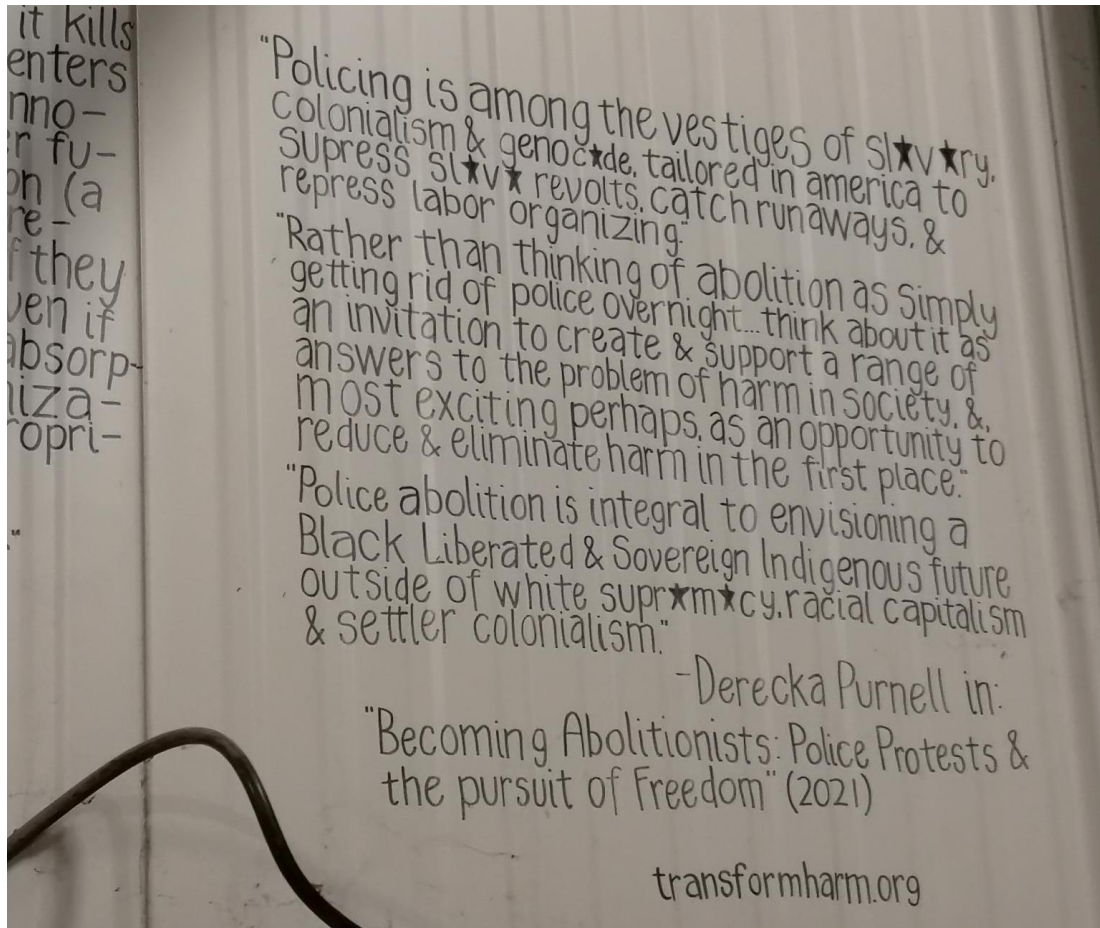 it kills
enters
nno-
r fu-
on (a
re-
f they
ven if
absorp-
niza-
opri-
"
"Policing is among the vestiges of sl★v★ry,
colonialism & genoc★de, tailored in america to
supress sl★v★ revolts, catch runaways, &
repress labor organizing."
"Rather than thinking of abolition as simply
getting rid of police overnight...think about it as
an invitation to create & support a range of
answers to the problem of harm in society, &,
most exciting perhaps, as an opportunity to
reduce & eliminate harm in the first place."
"Police abolition is integral to envisioning a
Black Liberated & Sovereign Indigenous future
outside of white supr★m★cy, racial capitalism
& settler colonialism."
-Derecka Purnell in:
"Becoming Abolitionists: Police Protests &
the pursuit of Freedom" (2021)
transformharm.org